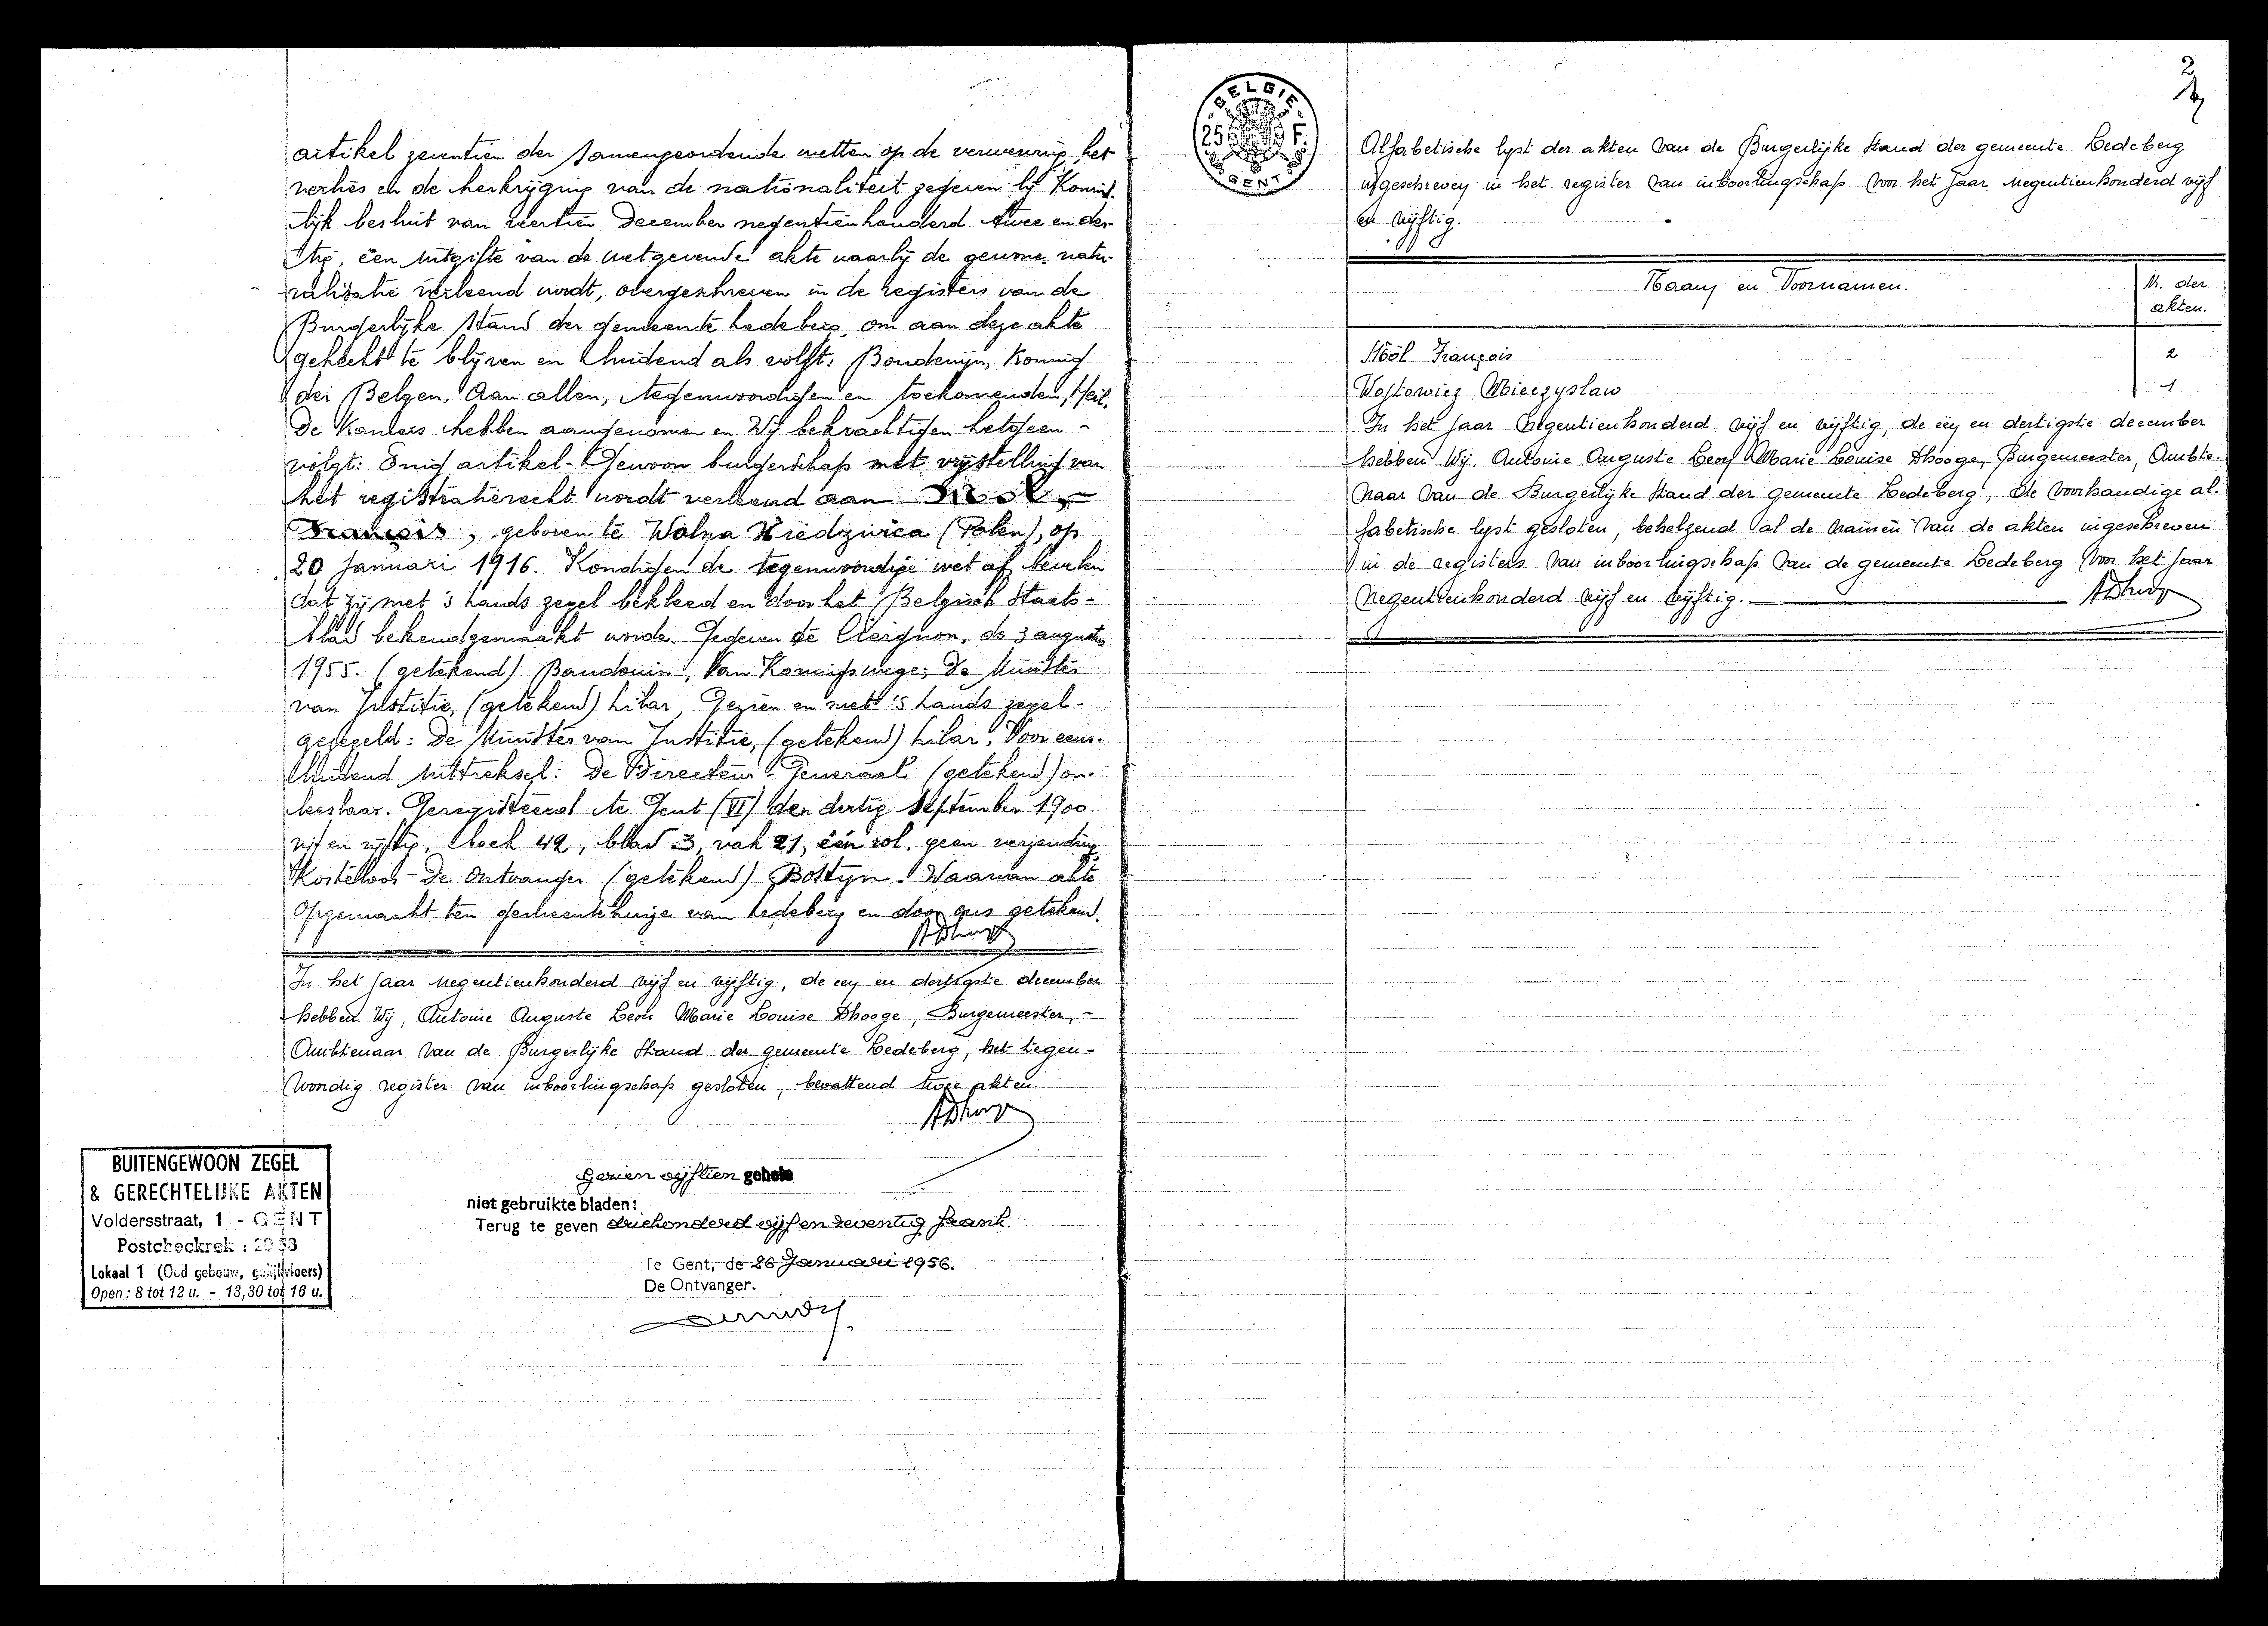 artikel zeventien der samengeordende wetten op de verwerving, het
verlies en de herkrijging van de nationaliteit gegeven bij Konink-
lijk besluit van veertien December negentienhonderd twee en der-
tig, een uitgifte van de wetgevende akte waarbij de gewone natu-
ralisatie verleend wordt, overgeschreven in de registers van de
Burgerlijke Stand der gemeente Ledeberg, om aan deze akte
gehecht te blijven en luidend als volgt: Boudewijn, Koning
der Belgen, Aan allen, tegenwoordigen en toekomenden, Heil.
De Kamers hebben aangenomen en Wij bekrachtigen hetgeen -
volgt: Enig artikel - Gewoon burgerschap met vrijstelling van
het registratierecht wordt verleend aan Mol,
François, geboren te Wolna (Polen), op
20 Januari 1916. Kondigen de tegenwoordige wet af, bevelen
dat zij met 's Lands zegel bekleed en door het Belgisch Staats-
blad bekendgemaakt worde. Gegeven te Ciergnon, de 3 augustus
1955. (getekend) Baudouin, Van Koningswege: De Minister
van Justitie, (getekend) Lilar, Gezien en met 's Lands zegel -
gezegeld: De Minister van Justitie, (getekend) Lilar. Voor eens-
luidend uittreksel: De Directeur-Generaal (getekend) on-
leesbaar. Geregistreerd te Gent (VI) den dertig September 1900
vijf en vijftig, boek 42, blad 3, vak 21, één rol, geen verzending
Kosteloos - De Ontvanger (getekend) Bostyn. Waarvan akte
Opgemaakt ten gemeentehuize van Ledeberg en door ons getekend.
ADhooge
In het jaar negentienhonderd vijf en vijftig, de een en dertigste december
hebben Wij, Antoine Auguste Leon Marie Louise Dhooge, Burgemeester, -
Ambtenaar van de Burgerlijke Stand der gemeente Ledeberg, het tegen-
woordig register van inboorlingschap gesloten, bevattend twee akten.
ADhooge
BUITENGEWOON ZEGEL
& GERECHTELIJKE AKTEN
Voldersstraat, 1 - GENT
Postcheckrek : 2053
Lokaal 1 (Oud gebouw, gelijkvloers)
Open : 8 tot 12 u. - 13,30 tot 16 u.
Gezien vijftien gehele
niet gebruikte bladen:
Terug te geven driehonderd vijf en zeventig frank.
Te Gent, de 26 Januari 1956.
De Ontvanger.
BELGIE
25 F.
GENT
2
Alfabetische lyst der akten van de Burgerlijke Stand der gemeente Ledeberg
ingeschreven in het register van inboorlingschap voor het jaar negentienhonderd vijf
en vijftig.
Naam en Voornamen.
N. der
akten.
Mól François 2
Wojtowicz Mieczyslaw 1
In het jaar negentienhonderd vijf en vijftig, de een en dertigste december
hebben Wij, Antoine Auguste Leon Marie Louise Dhooge, Burgemeester, Ambte-
naar van de Burgerlijke Stand der gemeente Ledeberg, de voorhandige al-
fabetische lyst gesloten, behelzend al de namen van de akten ingeschreven
in de registers van inboorlingschap van de gemeente Ledeberg voor het jaar
negentienhonderd vijf en vijftig.
ADhooge